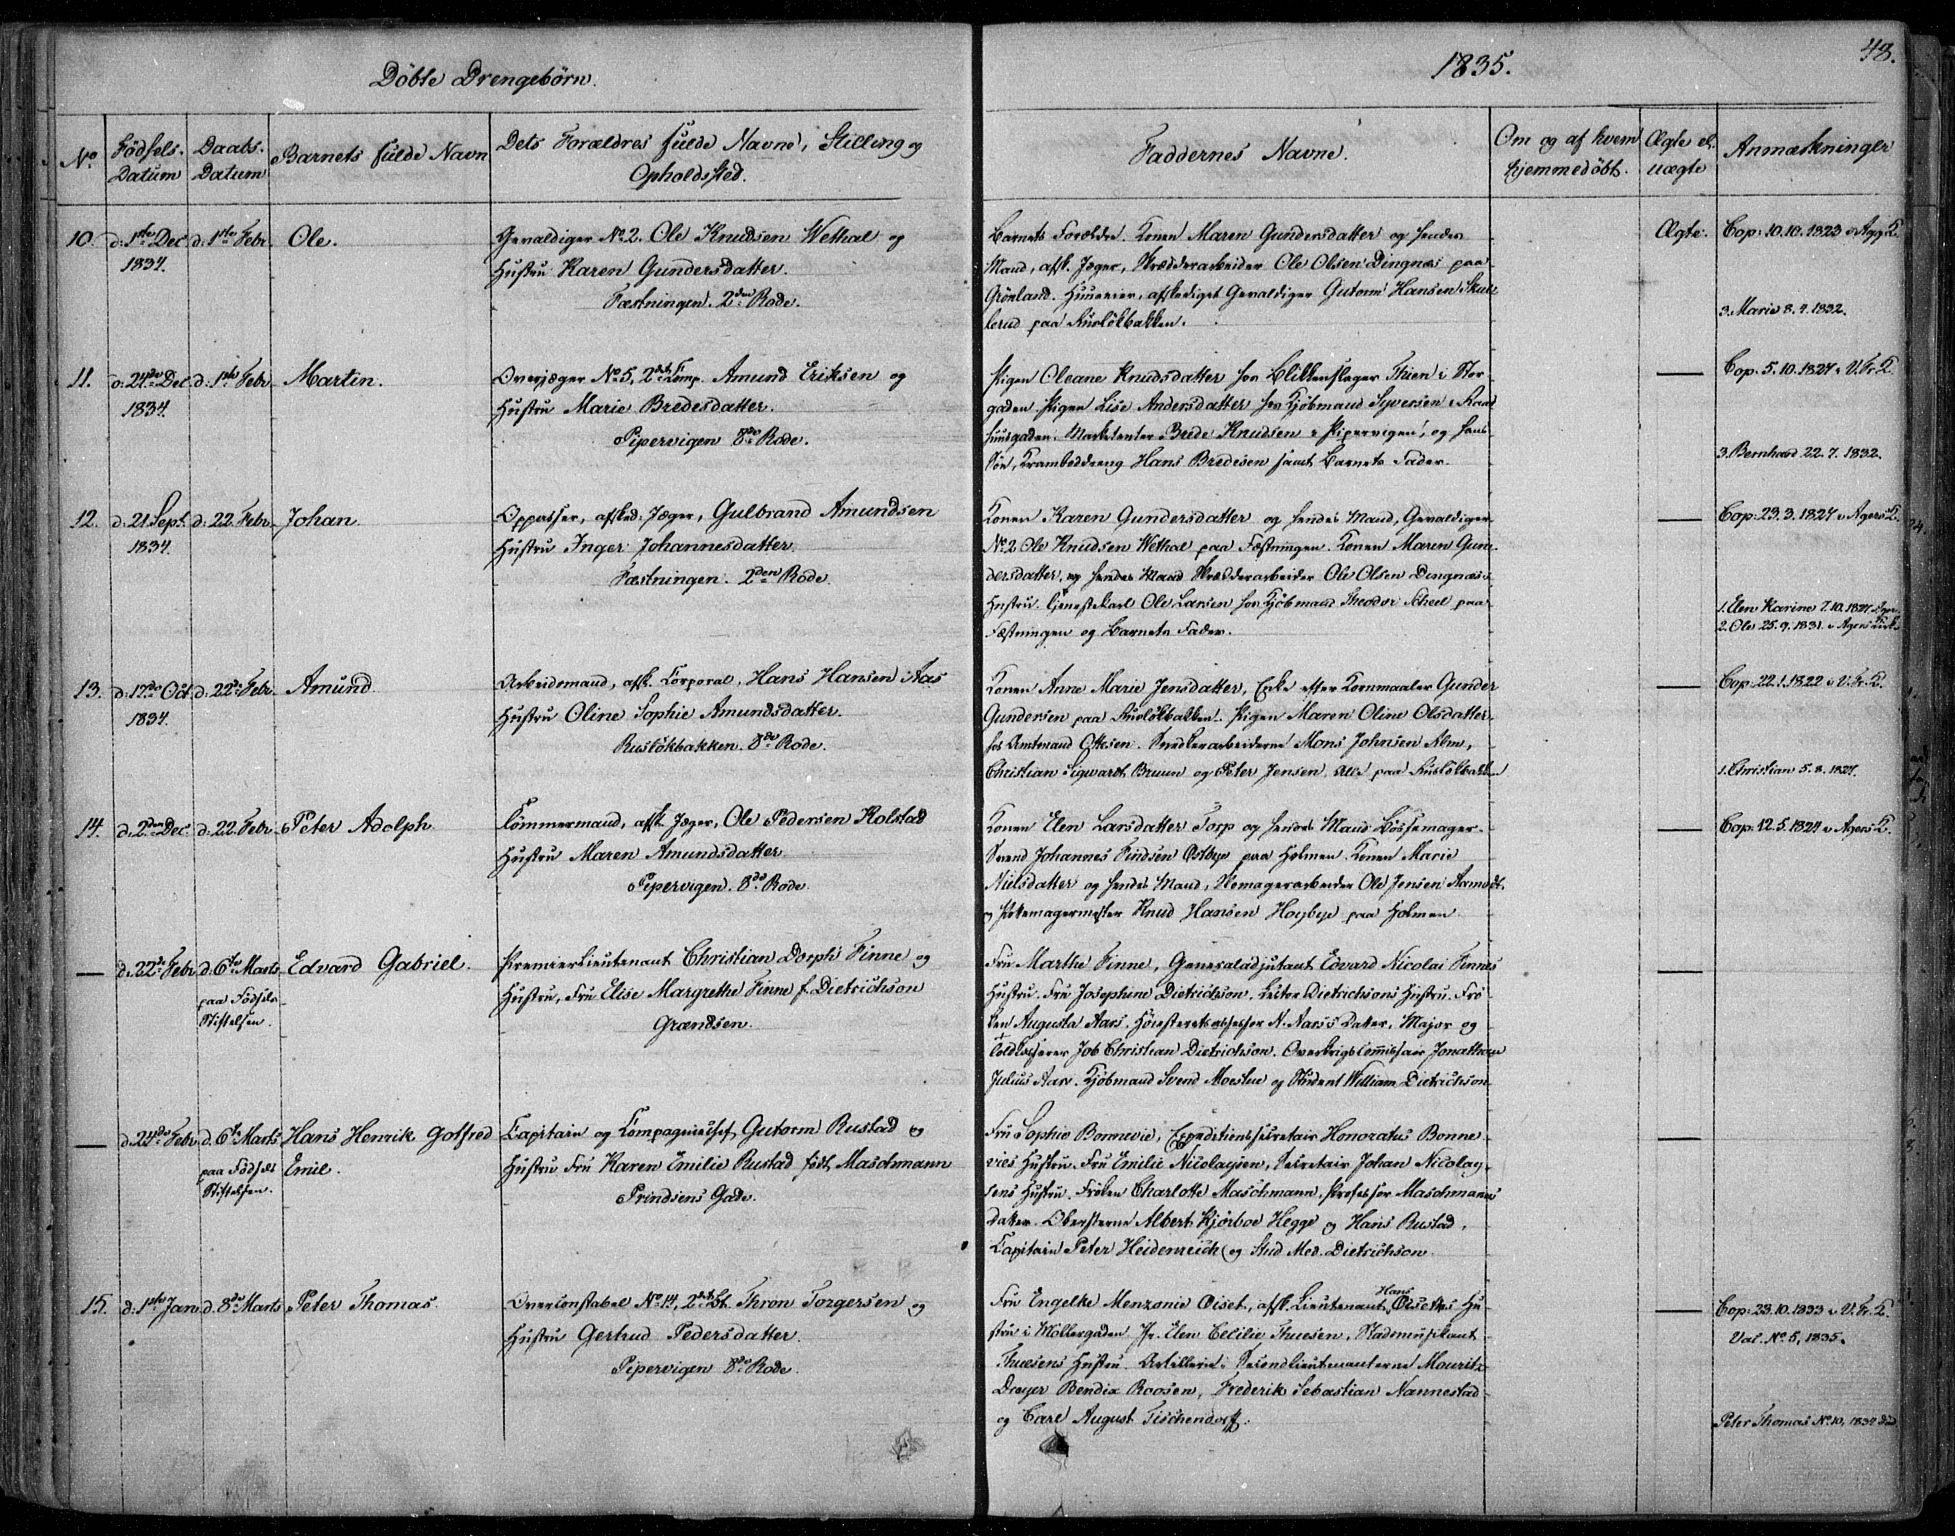 48.
Döbte Drengebörn.
1835.
No
Födsels-
Datum
Daabs-
Datum
Barnets fulde Navn
Dets Forældres fulde Navne, Stilling og
Opholdssted.
Faddernes Navne.
Om og af hvem
hjemmedöbt.
Ægte el.
uægte
Anmærkninger
10. d: 1ste Dec. d: 1ste Febr. Ole.
1834.
Gevaldiger No 2. Ole Knudsen Wethal og
Hustru Karen Gundersdatter.
Fæstningen. 2den Rode.
Barnets Forældre. Konen Maren Gundersdatter og hendes
Mand, afsk. Jæger, Skrædderarbeider Ole Olsen Dingnæs paa
Grönland. Huuseier, afskediget Gevaldiger Gutorm Hansen Skul-
lerud paa Ruslökbakken.
Ægte.
Cop: 10.10.1823 i Agg. K.
3. Marie 8.4.1832.
11. d: 24de Dec. d: 1ste Febr. Martin.
1834.
Overjæger No 5, 2det Comp. Amund Eriksen og
Hustru Marie Bredesdatter.
Pipervigen 8de Rode.
Pigen Oleane Knudsdatter hos Blikkenslager Thien i Stor-
gaden Pigen Lise Andersdatter hos Kjöbmand Syversen i Raad-
huusgaden. Marketenter Brede Knudsen i Pipervigen, og hans
Sön, Kramboddreng Hans Bredesen samt Barnets Fader.
Cop. 5.10.1827 i V. Fr. K.
3. Bernhard 22.7.1832.
12. d: 21 Sept. d: 22 Febr. Johan.
1834.
Oppasser, afsked: Jæger, Gulbrand Amundsen
Hustru Inger Johannesdatter.
Fæstningen. 2den Rode.
Konen Karen Gundersdatter og hendes Mand, Gevaldiger
No 2 Ole Knudsen Wethal paa Fæstningen. Konen Maren Gun-
dersdatter, og hendes Mand Skrædderarbeider Ole Olsen Dingnæs
Hustru. Tjenestekarl Ole Larsen hos Kjöbmand Theodor Scheel paa
Fæstningen og Barnets Fader.
Cop: 23.3.1827 i Agers K.
1. Elen Karine 7.10.1827 i Agers
2. Ole 25.9.1831 i Agers Kirke
13. d: 17de Oct. d: 22de Febr. Amund
1834.
Arbeidsmand, afsk. Corporal, Hans Hansen Aas
Hustru Oline Sophie Amundsdatter.
Ruslökbakken. 8de Rode.
Konen Anne Marie Jensdatter, Enke efter Kornmaaler Gunder
Gundersen paa Ruslökbakken. Pigen Maren Oline Olsdatter
hos Amtmand Ottesen. Snedkerarbeiderne Mons Johnsen Alm,
Christian Sigwardt Bruun og Peter Jensen, Alle paa Ruslökbakken
Cop: 22.1.1822 i V. Fr. K.
1. Christian 5.8.1827.
14. d: 2den Dec. d: 22 Febr. Peter Adolph.
Tömmermand, afsk. Jæger, Ole Pedersen Kolstad
Hustru Maren Amundsdatter.
Pipervigen. 8de Rode.
Konen Elen Larsdatter Torp og hendes Mand Bössemager-
Svend Johannes Findsen Østbye paa Holmen. Konen Marie
Nielsdatter og hendes Mand, Skomagerarbeider Ole Jensen Aamodt
og Skomagermester Knud Hansen Høybye paa Holmen.
Cop: 12.5.1824 i Agers K.
d: 22de Febr. d: 6te Marts Edvard Gabriel.
paa Födsels-
Stiftelsen.
Premierlieutenant Christian Dorph Finne og
Hustru, Fru Elise Margrethe Finne f. Dietrichson
Grændsen.
Fru Marthe Finne, Generaladjutant Edvard Nicolai Finnes
Hustru. Fru Josephine Dietrichson, Lector Dietrichsons Hustru. Frö-
ken Augusta Aars, Höiesteretsassessor N. Aars's Datter, Major og
Toldkasserer Job Christian Dietrichson. Overkrigscommissair Jonathan
Julius Aars. Kjöbmand Svend Moestue og Student William Dietrichson.
d. 24de Febr. d. 6te Marts Hans Henrik Gotfred
paa Födsels-
Stiftelsen.
Emil.
Capitain og Compagniechef Gutorm Rustad og
Hustru Fru Karen Emilie Rustad födt Maschmann
Prindsens Gade.
Fru Sophie Bonnevie, Expeditionssecretair Honoratus Bonne-
vies Hustru. Fru Emilie Nicolaysen, Secretair Johan Nicolay-
sens Hustru. Fröken Charlotte Maschmann, Professor Maschmanns
Datter. Obersterne Albert Kjörboe Hegge og Hans Rustad,
Capitain Peter Heidenreich og Stud Med. Dietrichson.
15. d: 1ste Jan. d. 8de Marts Peter Thomas.
Overconstabel No 14, 2det Bt. Thron Torgersen og
Hustru Gertrud Pedersdatter.
Pipervigen 8de Rode.
Fru Engelke Menzonie Oiset, afsk. Lieutenant Hans Oisettes Hu-
stru i Möllergaden Jfr. Elen Cecilie Thuesen, Stadsmusikant
Thuesens Hustru. Artillerie-Secondlieutenanterne Mouritz
Dreyer Bendix Roosen, Frederik Sebastian Nannestad
og Carl August Tischendorff.
Cop: 23.10.1833 i V. Fr. K.
Val. No 5, 1835.
Peter Thomas No 10, 1834 död